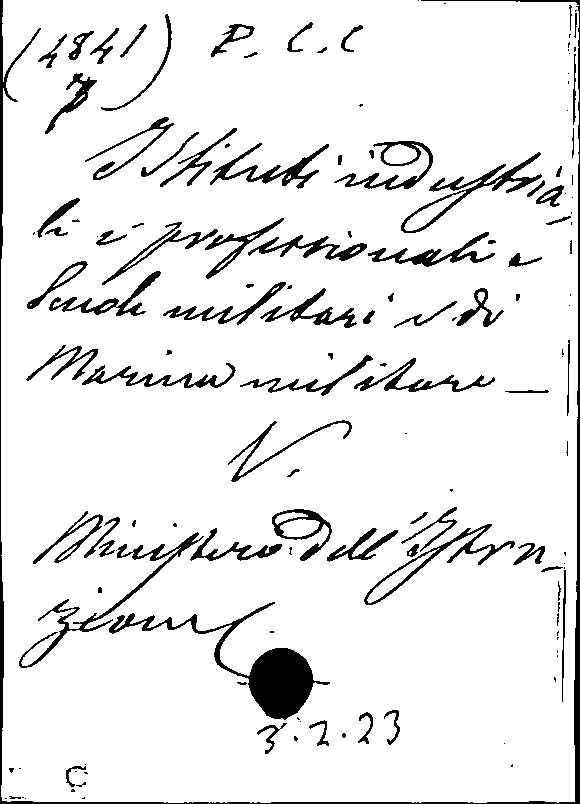 (4841) P. C. C
Istituti industria-
li e professionali e
Scuole militari e di
Marina militare —
V.
Ministero dell'Istru-
zione
3.2.23
C